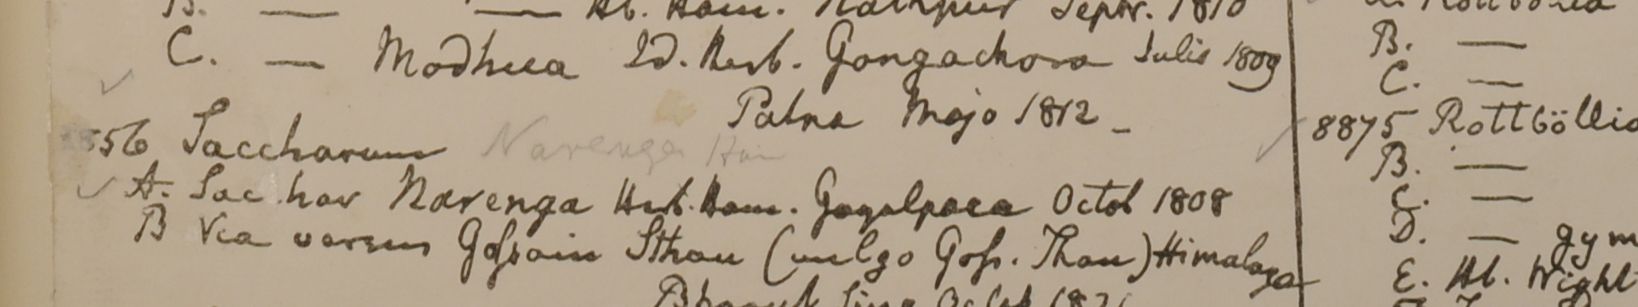 B. — — Hb. Ham. Nathpur Septr. 1810
C. — Modhua Id. Herb. Gongachora Julis 1809
Patna Majo 1812 -
8856 Saccharum Narenga Ham
A. Sac har Narenga Herb. Ham. Goyalpara Octob 1808
B Via versus Gossain Sthan (vulgo Goss. Than) Himalaya
1821
B. —
C. —
8875 Rottböllia
B. —
C. —
D. — gym
E. Hb. Wight